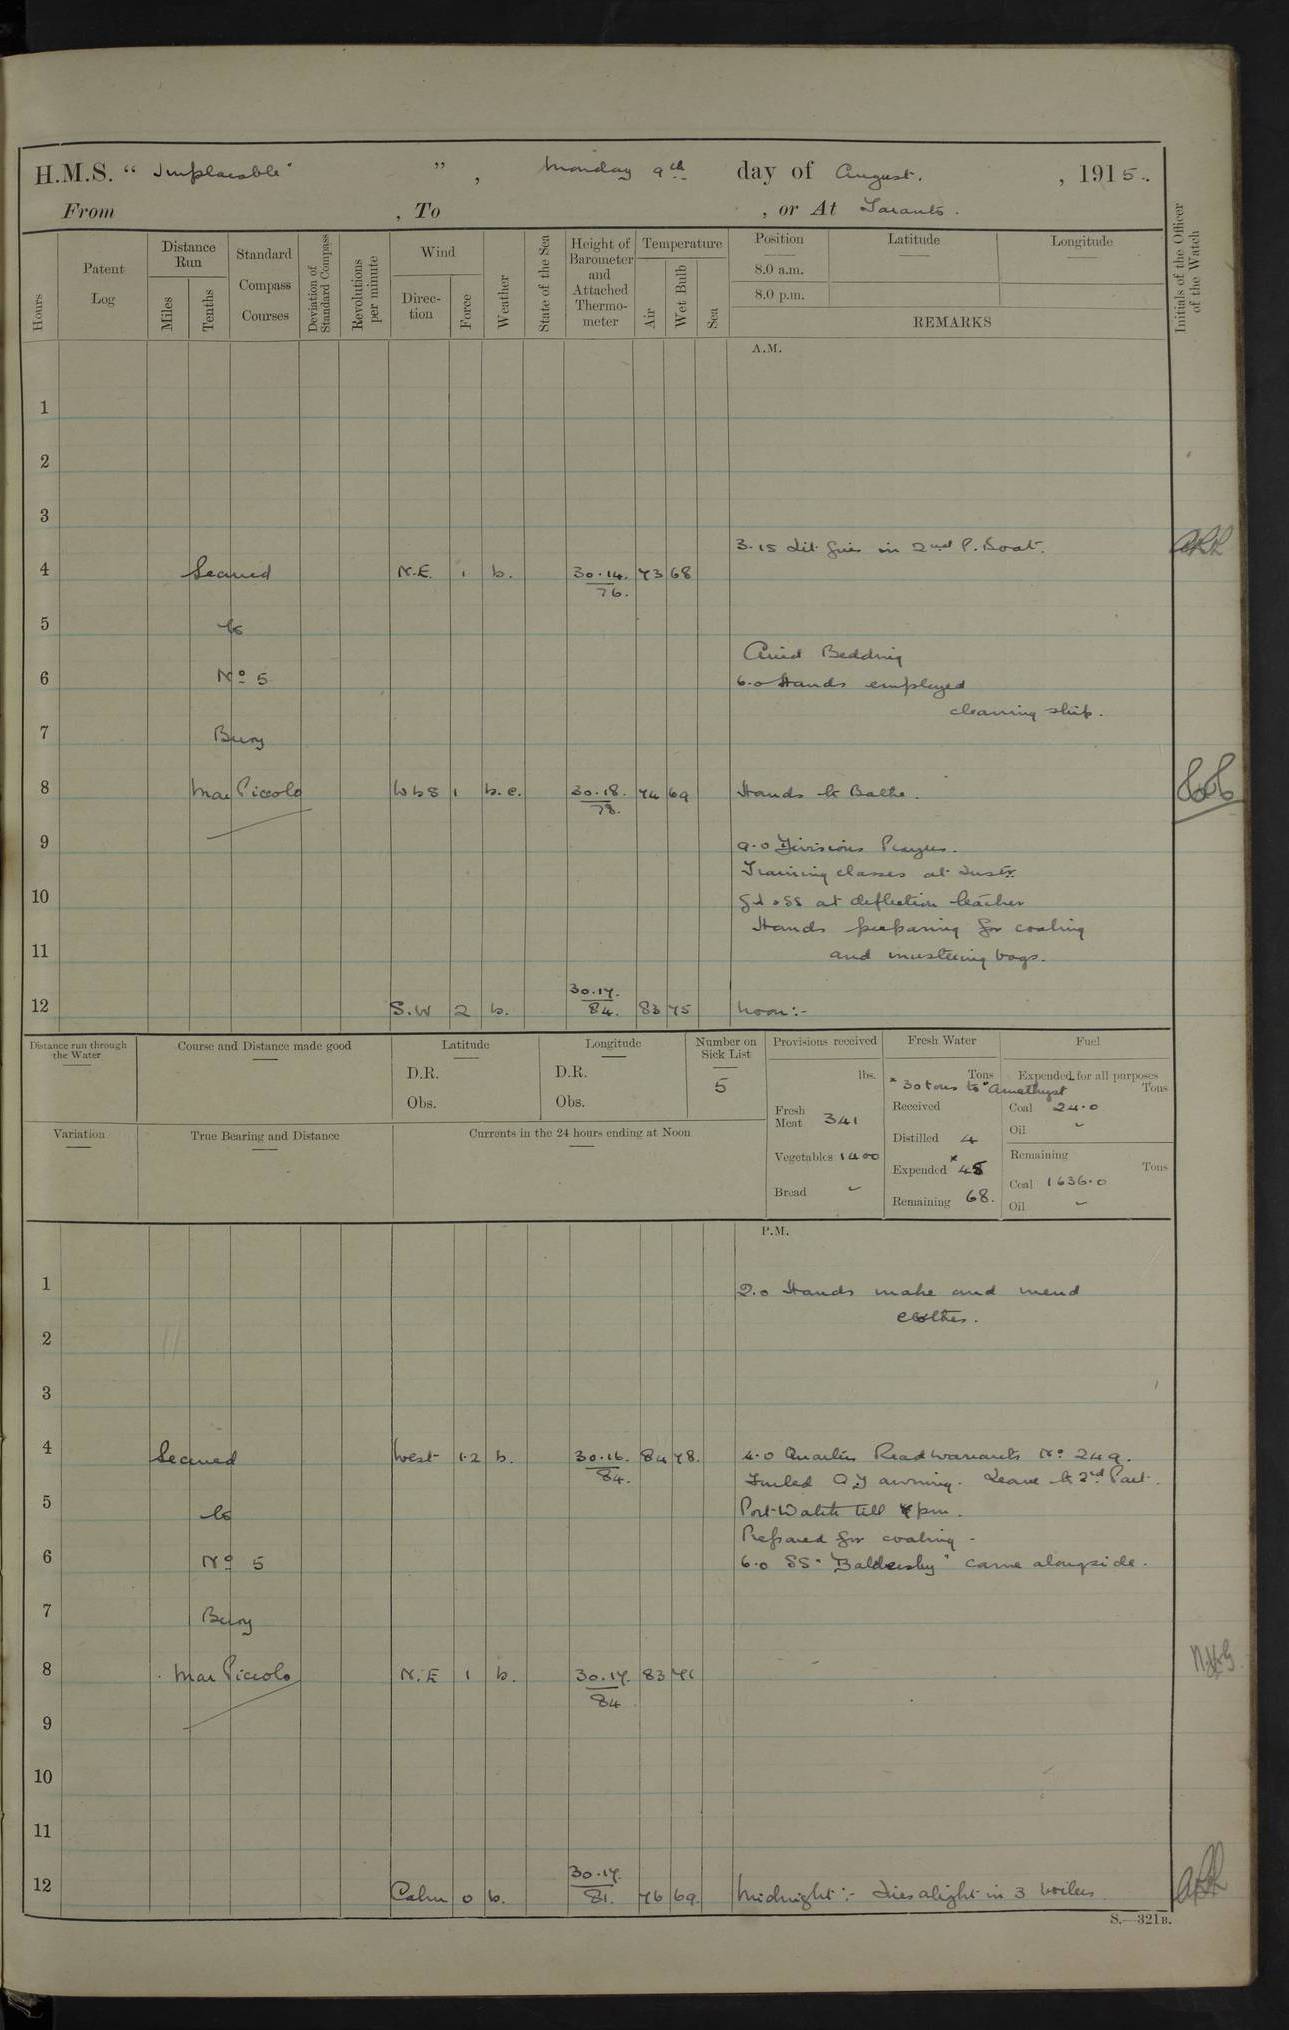 H.M.S. “ Implacable ” , Monday 9th day of August. , 1915.
From , To , or At Taranto.
Hours
Patent Log
Distance Run
Miles
Tenths
Standard Compass Courses
Deviation of Standard Compass
Revolutions per minute
Wind
Direction
Force
Weather
State of the Sea
Height of Barometer and Attached Thermometer
Temperature
Air
Wet Bulb
Sea
Position
8.0 a.m.
8.0 p.m.
Latitude
Longitude
REMARKS
Initials of the Officer of the Watch
A.M.
1
2
3
3.15 Lit fires in 2nd P. Boat.
4 Secured N.E. 1 b. 30.14. 73 68
76.
5 to
Aired Bedding
6 No 5 6.0 Hands employed
cleaning ship.
7 Buoy
8 Mar Piccolo WbS 1 b.c. 30.18. 74 69 Hands to Bathe.
78.
9 9.0 Divisions Prayers.
Training classes at Instr.
10 at deflection teacher
Hands preparing for coaling
11 and mustering bags.
30.17.
12 S.W 2 b. 84. 83 75 Noon:-
Distance run through the Water
Course and Distance made good
Latitude
D.R.
Obs.
Longitude
D.R.
Obs.
Number on Sick List
5
Provisions received
lbs.
Fresh Meat 341
Vegetables 1400
Bread -
Fresh Water
Tons
* 30 tons to "Amethyst
Received
Distilled 4
Expended * 45
Remaining 68.
Fuel
Expended for all purposes
Tons
Coal 24.0
Oil -
Remaining
Tons
Coal 1636.0
Oil -
Variation
True Bearing and Distance
Currents in the 24 hours ending at Noon
P.M.
1 2.0 Hands make and mend
clothes.
2
3
4 Secured West 1.2 b. 30.16. 84 78. 4.0 Quarters Read warrants No 249.
84. Furled Q D awning. Leave to 2nd Part.
5 to Port Watch till 7 pm.
Prepared for coaling -
6 No 5 6.0 SS "Baldersby" came alongside.
7 Buoy
8 Mar Piccolo N.E 1 b. 30.17. 83 71
84
9
10
11
30.17.
12 Calm 0 b. 81. 76 69. Midnight :- Fires alight in 3 boilers
S.—321B.